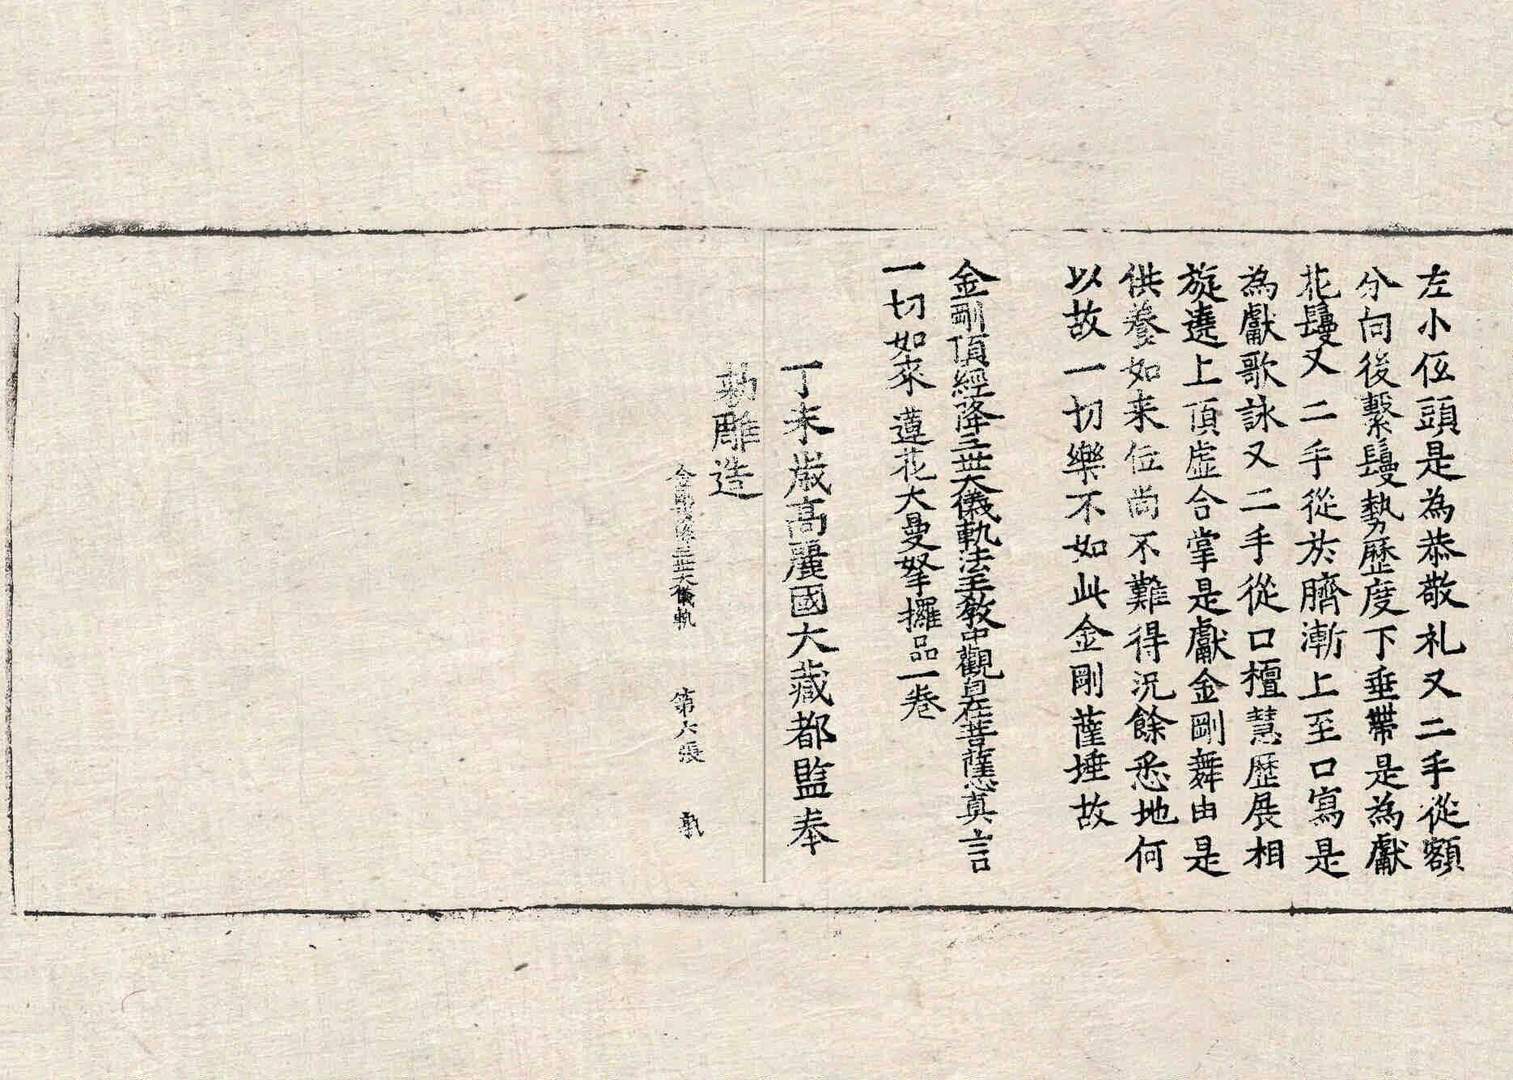 左小伍頭是為恭敬礼又二手從額
分向後繫鬘勢歷度下垂帶是為獻
花鬘又二手從於臍漸上至口寫是
為獻歌詠又二手從口檀慧歷展相
旋遶上頂虛合掌是獻金剛舞由是
供養如来位尚不難得況餘悉地何
以故一切樂不如此金剛薩埵故
金剛頂經降三世大儀軌法王教中觀自在菩薩心真言
一切如來蓮花大曼拏攞品一卷
丁未歲高麗國大藏都監奉
勅雕造
金剛頂降三世大儀軌 第六張